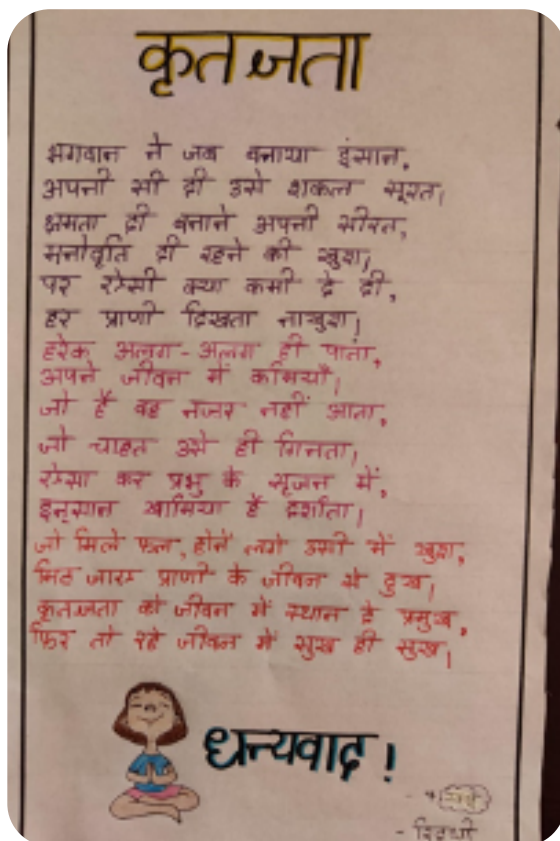 कृतज्ञता
भगवान ने जब बनाया इंसान,
अपनी सी दी उसे शकल सूरत,
क्षमता दी बनाने अपनी सीरत,
मनोवृति दी रहने की खुश,
पर ऐसी क्या कमी दे दी,
हर प्राणी दिखता नाखुश।
हरेक अलग-अलग ही पाता,
अपने जीवन में कमियाँ,
जो है वह नजर नहीं आता,
जो चाहत उसे ही गिनता,
ऐसा कर प्रभु के सृजन में,
इन्सान खामिया है दर्शाता।
जो मिले फल, होने लगे उसी में खुश,
मिट जाए प्राणी के जीवन से दुख,
कृतज्ञता को जीवन में स्थान दे प्रमुख,
फिर तो रहे जीवन में सुख ही सुख।
धन्यवाद!